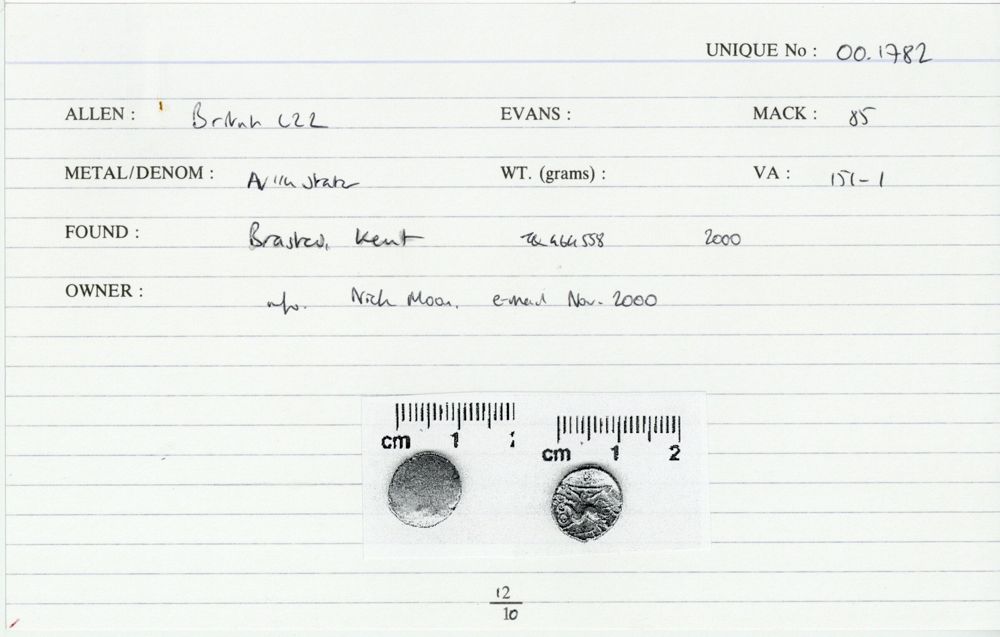 UNIQUE No : 00.1782
ALLEN : British L22 EVANS : MACK : 85
METAL/DENOM : WT. (grams) : VA : 151-1
FOUND : Brasted, Kent 2000
OWNER : info. Nick Moon. e-mail Nov. 2000
cm 1
cm 1 2
12
10